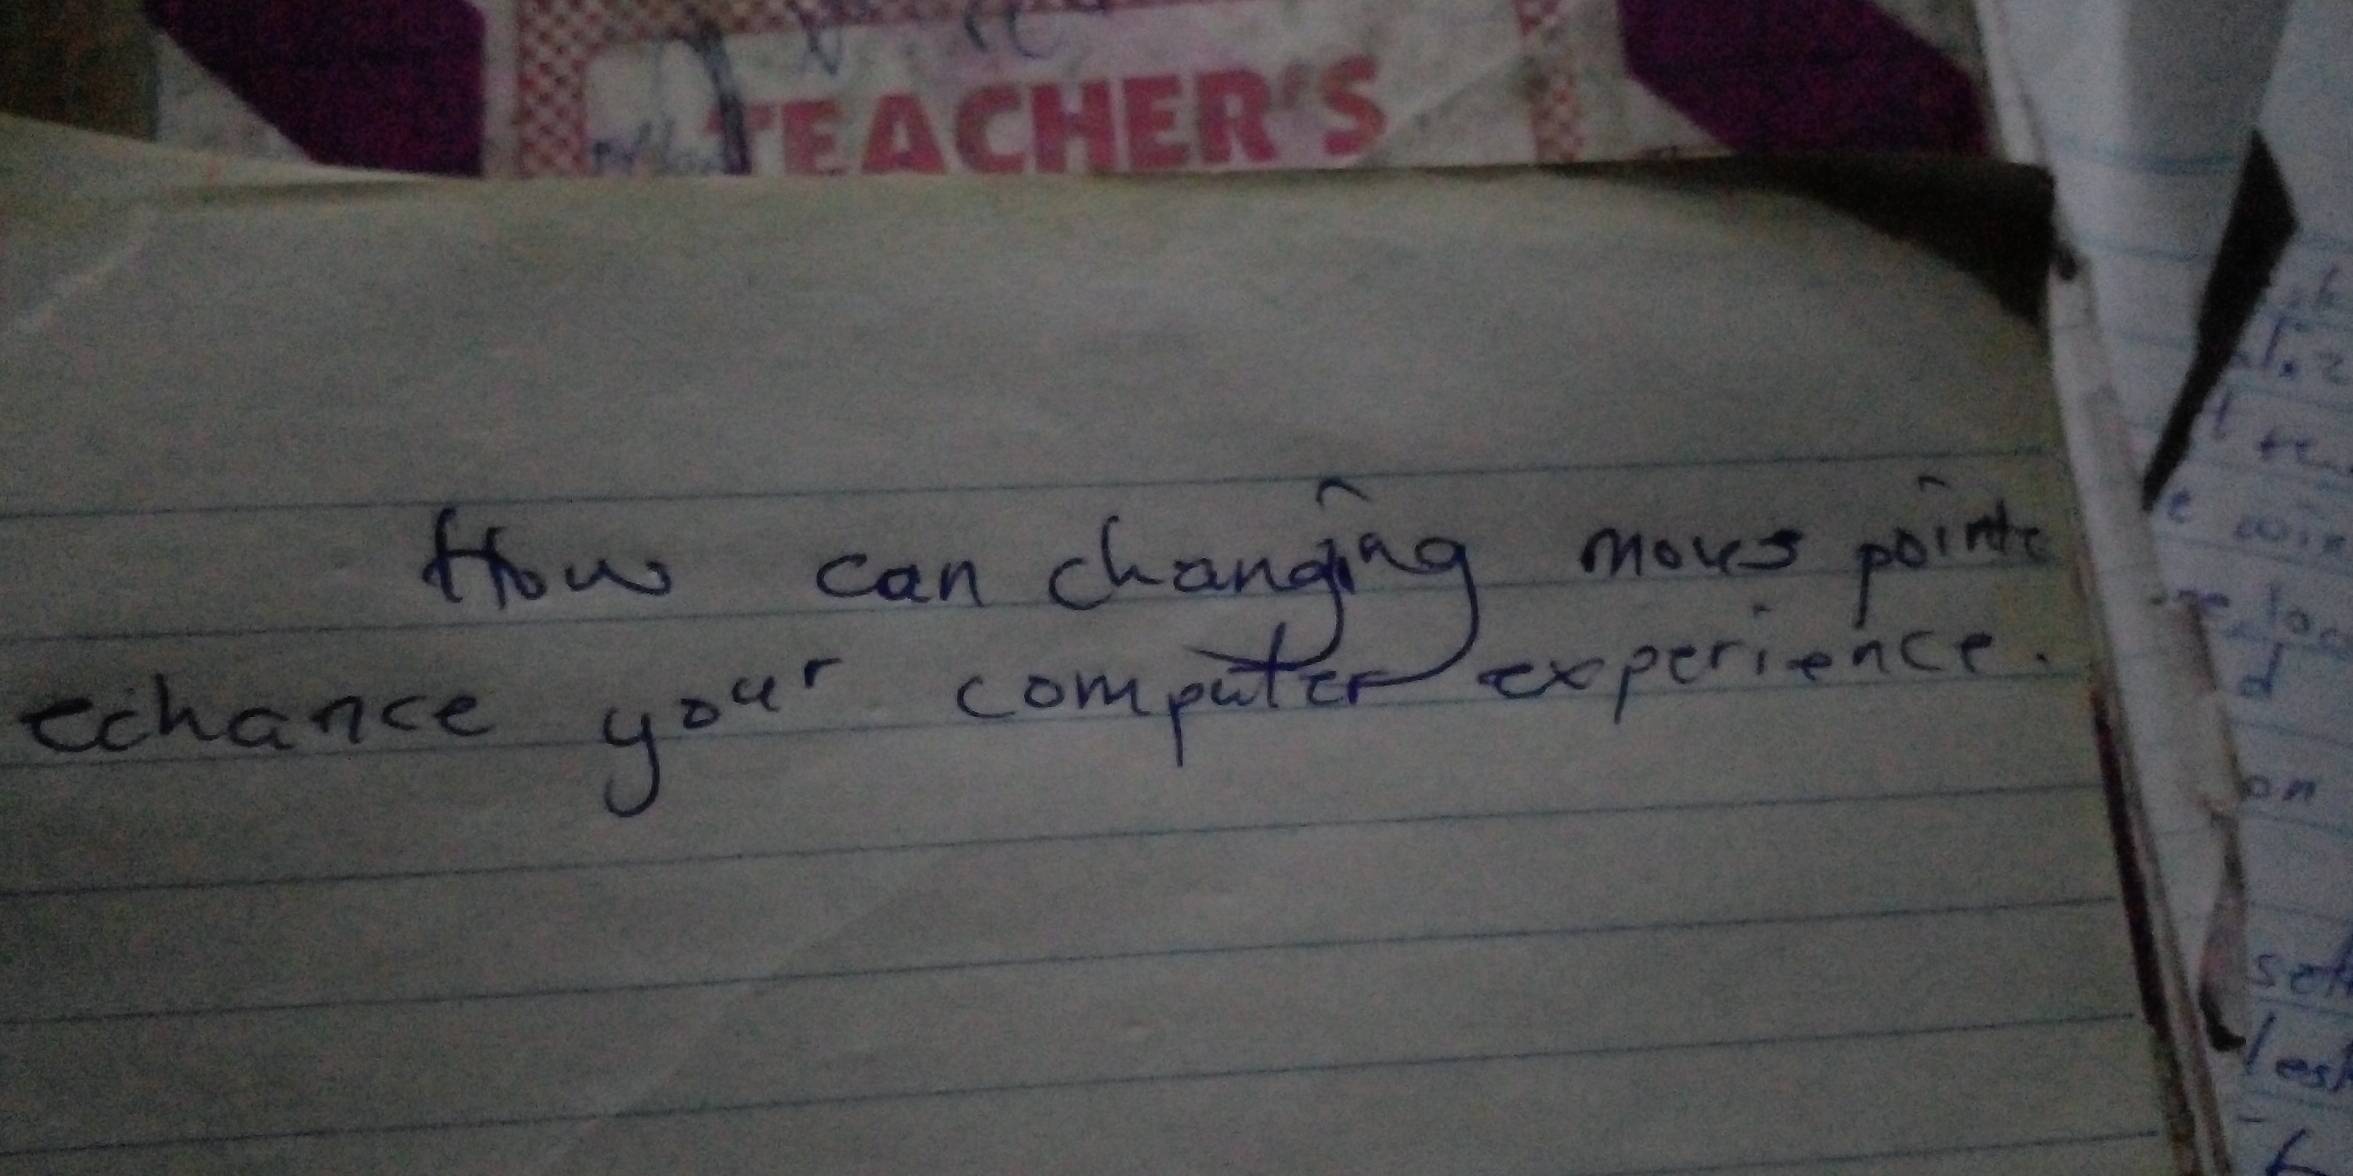 TEACHER'S
How can changing mous pointe
echance your computer experience.
d
on